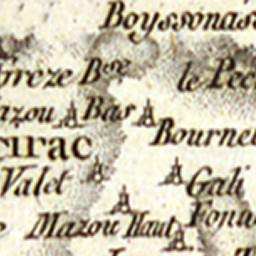 Boyssonas
reze Bse
le Pec
azou Bas
Bournel
cirac
Valet
Gali
Fonu
Mazou Haut